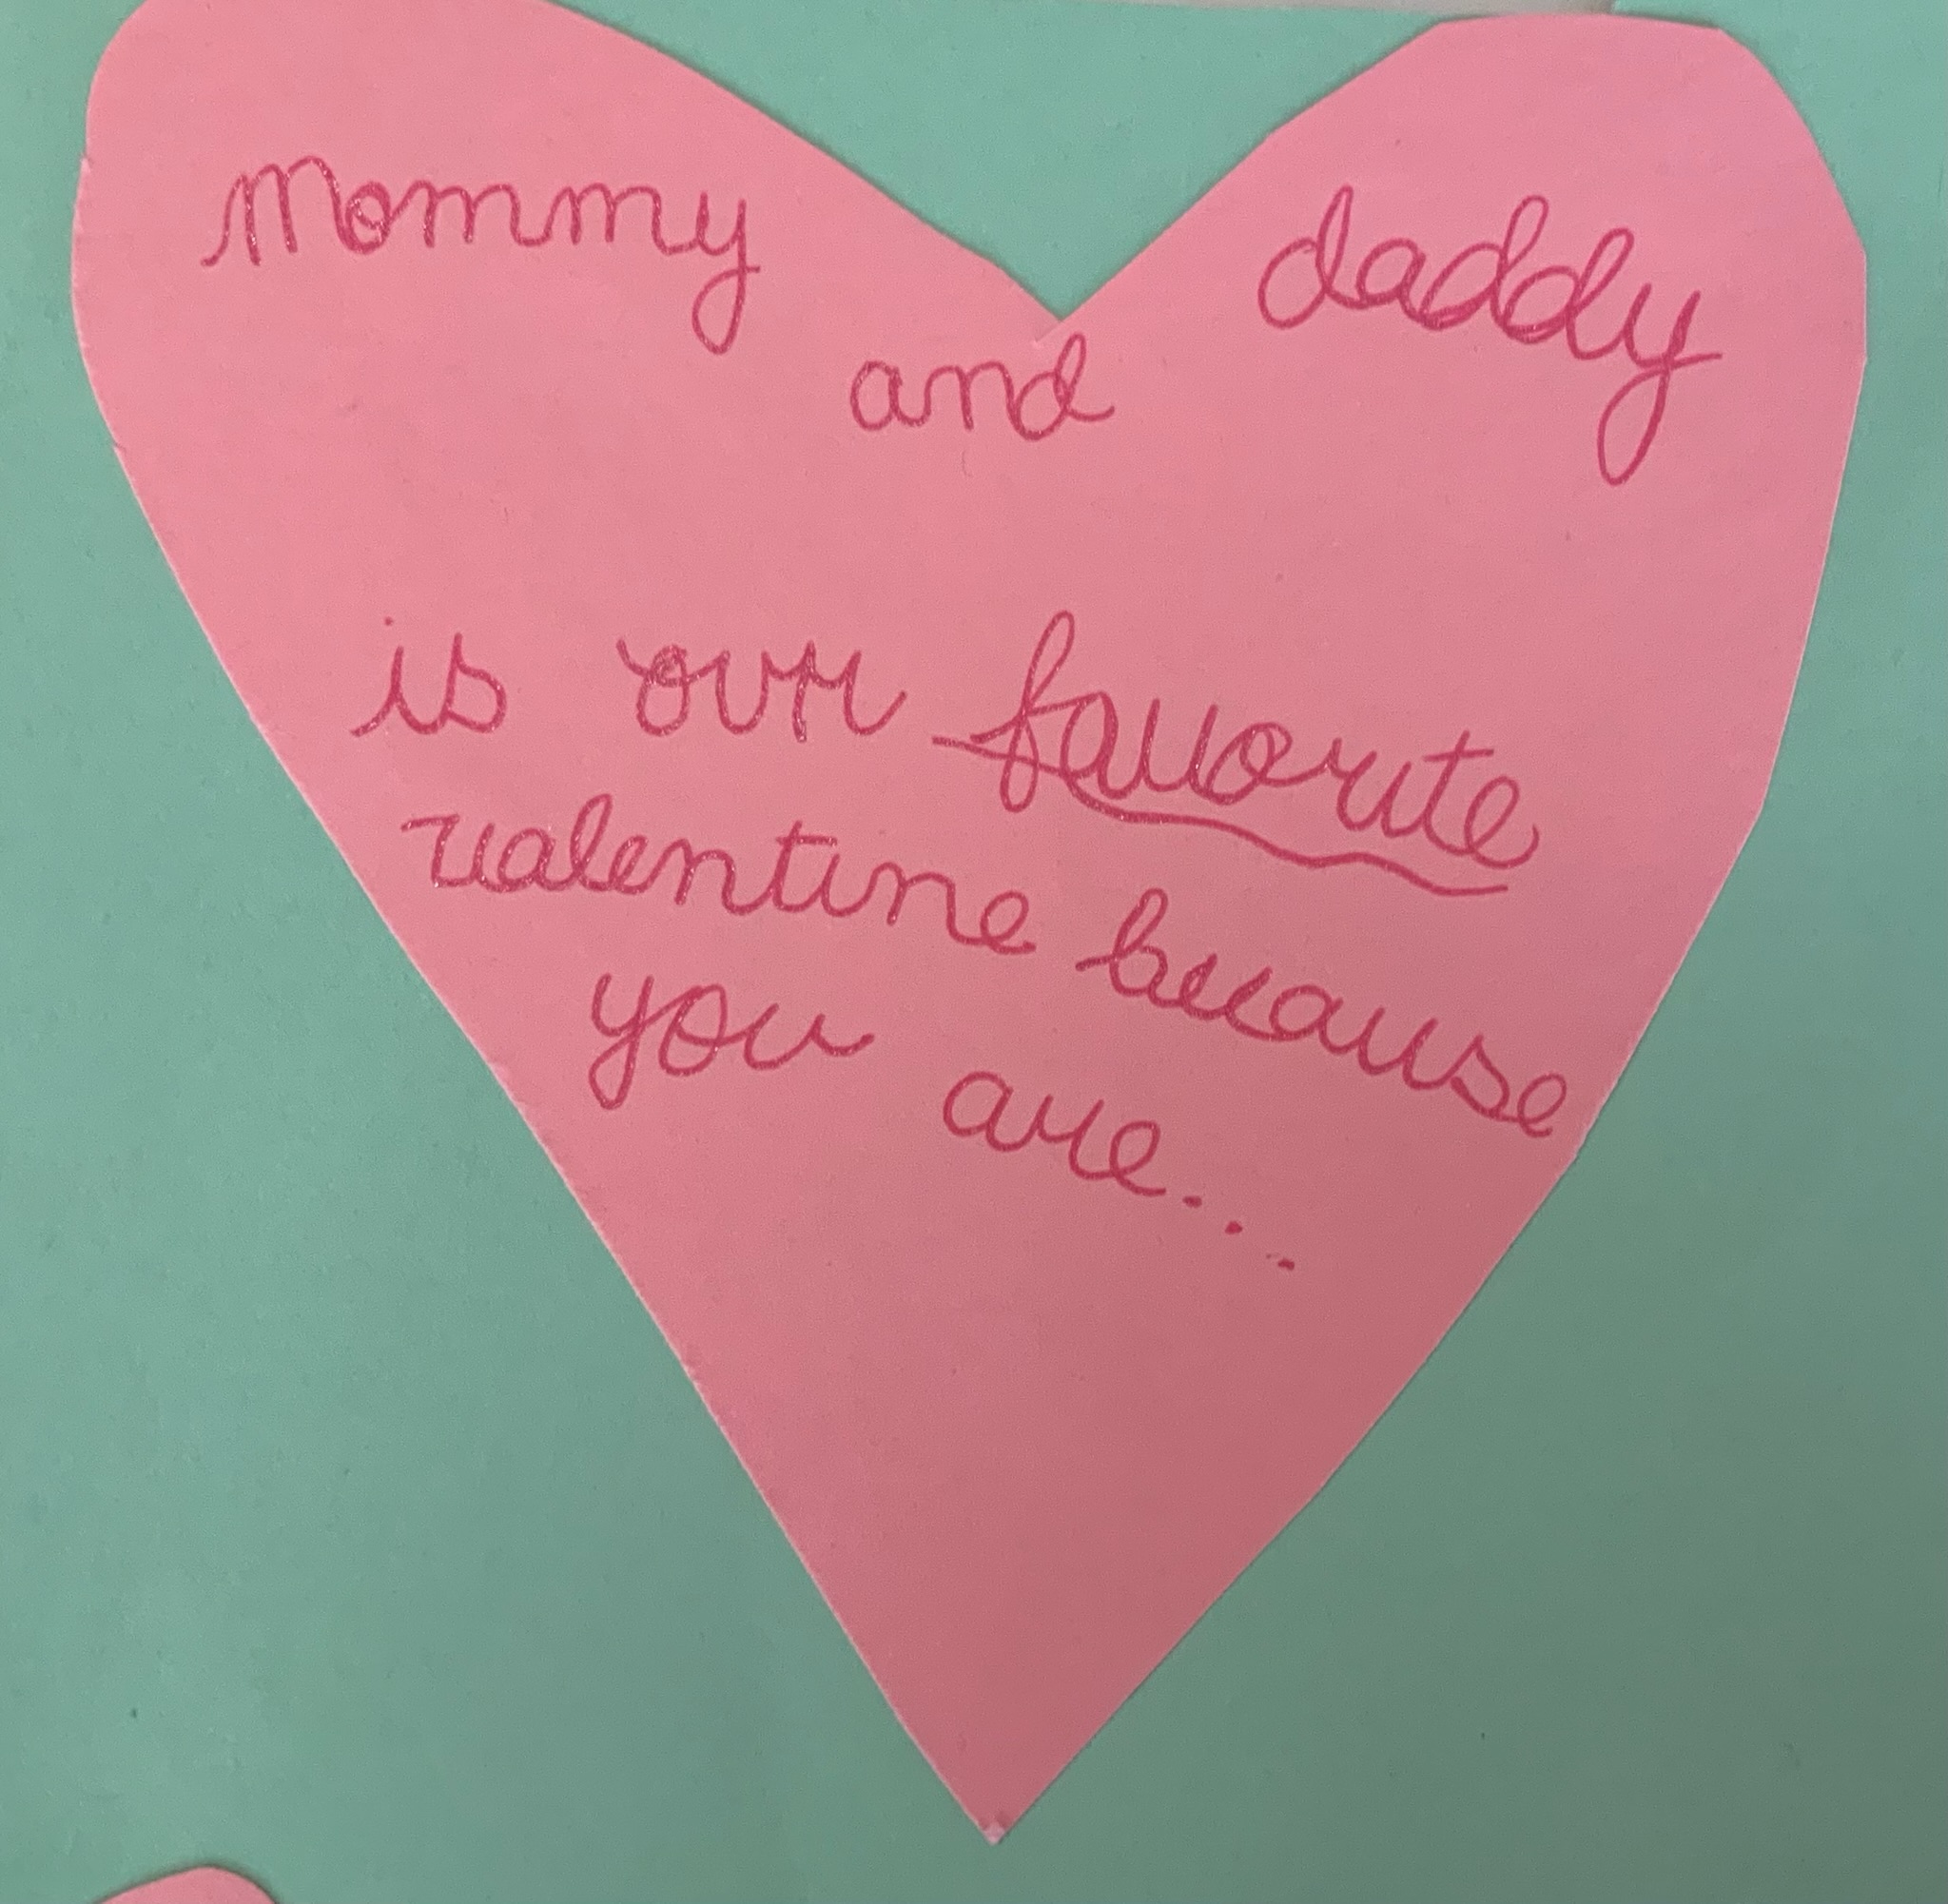 Mommy and daddy
is our favorite
valentine because
you are...